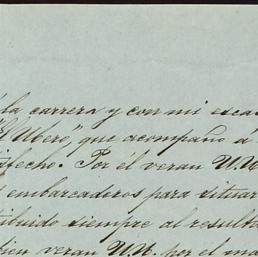 la carrera y con mi esca
"El Ubero", que acompaño á
isfecho. Por él veran U.U.
s embarcaderos para situar
ribuido siempre al result
bien veran U.U. por el ma